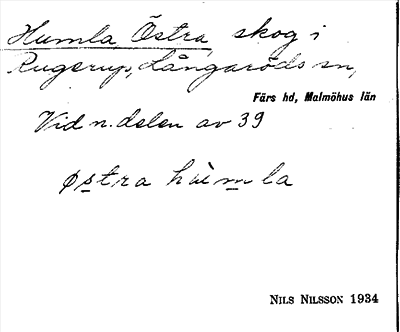 Humla Östra, skog i
Rugerup, Långaröds sn,
Färs hd, Malmöhus län
Vid n. delen av 39
østra hùmla
NILS NILSSON 1934